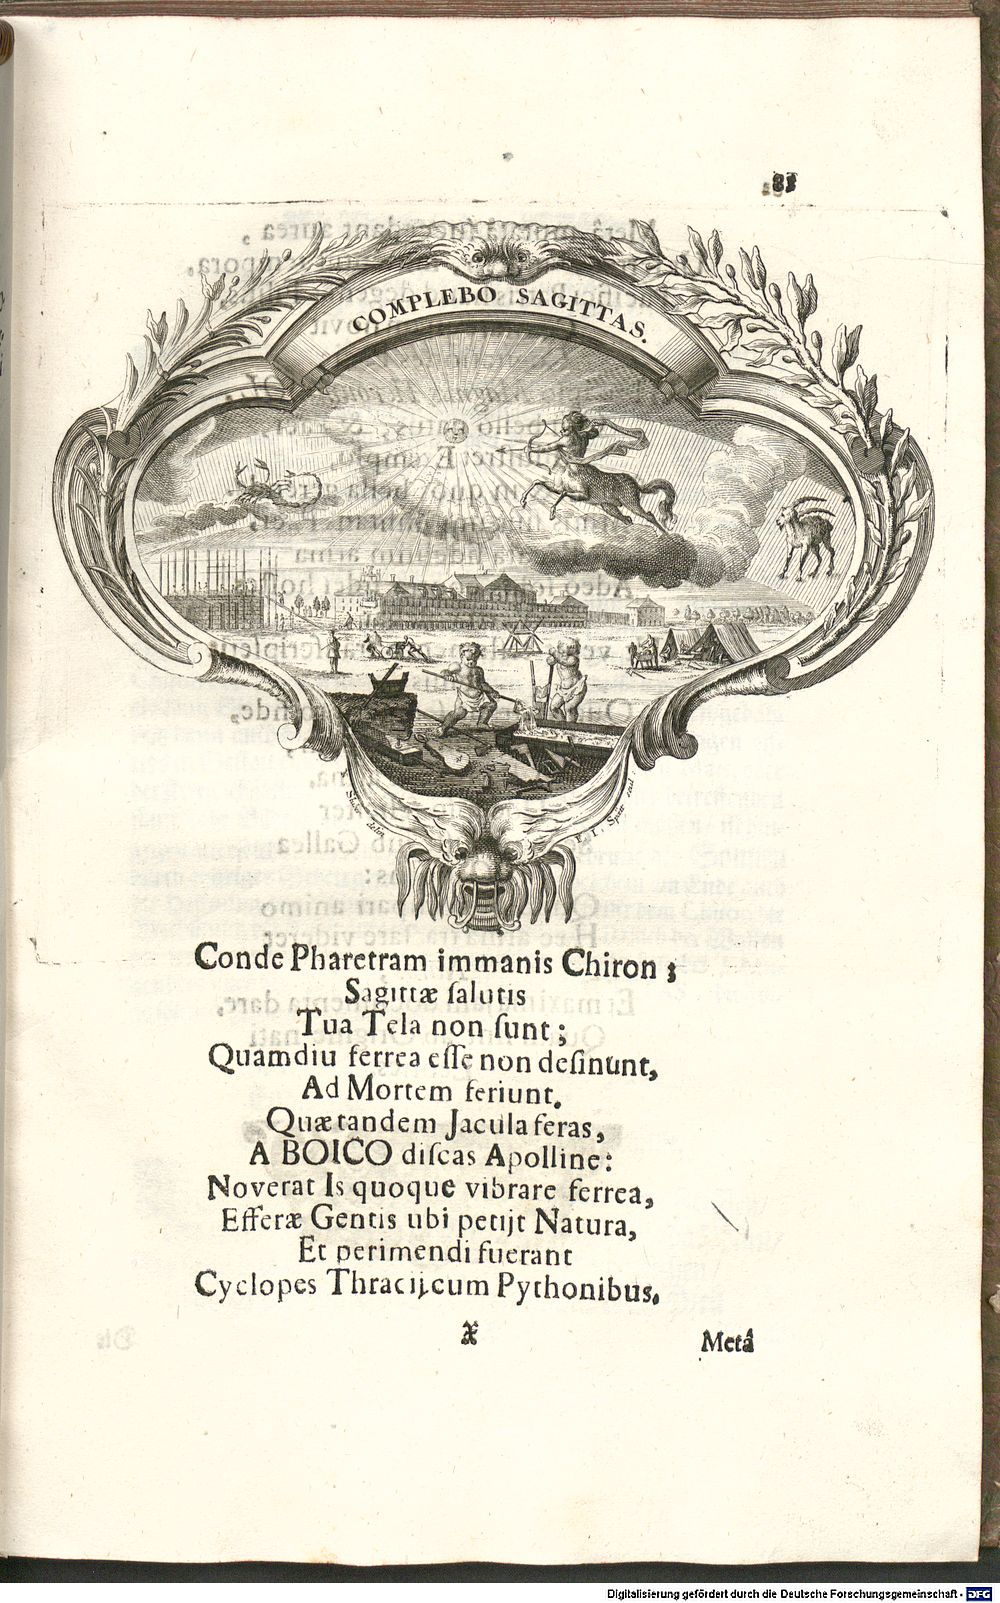 81
COMPLEBO SAGITTAS.
Conde Pharetram immanis Chiron;
Sagittæ ſalutis
Tua Tela non ſunt;
Quamdiu ferrea eſſe non deſinunt,
Ad Mortem feriunt.
Quæ tandem Jacula feras,
A BOICO diſcas Apolline:
Noverat Is quoque vibrare ferrea,
Efferæ Gentis ubi petijt Natura,
Et perimendi fuerant
Cyclopes Thracij cum Pythonibus.
X
Metâ
Digitalisierung gefördert durch die Deutsche Forschungsgemeinschaft - DFG